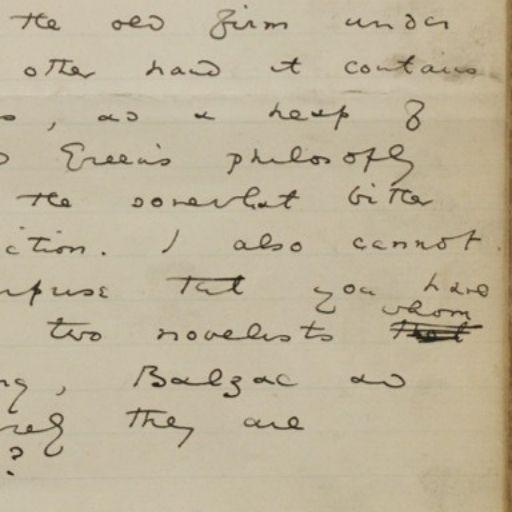 the old firm under
other hand it contains
s, as a heap of
Green's philosophy
the somewhat bitter
ction. I also cannot
rpuse that you have
two novelists that whom
ng, Balzac as
rely they are
?